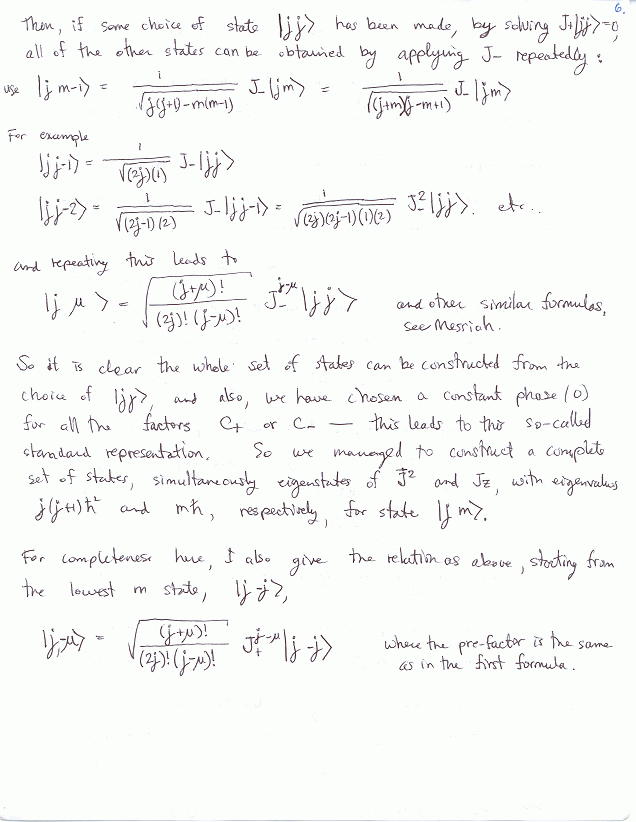 6.
Then, if some choice of state |jj> has been made, by solving J+|jj>=0,
all of the other states can be obtained by applying J- repeatedly:
use |j m-1> = 1/√(j(j+1)-m(m-1)) J-|jm> = 1/√((j+m)(j-m+1)) J-|jm>
For example
|jj-1> = 1/√((2j)(1)) J-|jj>
|jj-2> = 1/√((2j-1)(2)) J-|jj-1> = 1/√((2j)(2j-1)(1)(2)) J-²|jj>. etc..
and repeating this leads to
|j μ> = √((j+μ)!/((2j)!(j-μ)!)) J-^(j-μ) |jj> and other similar formulas,
see Messiah.
So it is clear the whole set of states can be constructed from the
choice of |jj>, and also, we have chosen a constant phase (0)
for all the factors C+ or C- — this leads to this so-called
standard representation. So we managed to construct a complete
set of states, simultaneously eigenstates of J² and Jz, with eigenvalues
j(j+1)ħ² and mħ, respectively, for state |j m>.
For completeness here, I also give the relation as above, starting from
the lowest m state, |j -j>,
|j,-μ> = √((j+μ)!/((2j)!(j-μ)!)) J+^(j-μ) |j -j> where the pre-factor is the same
as in the first formula.